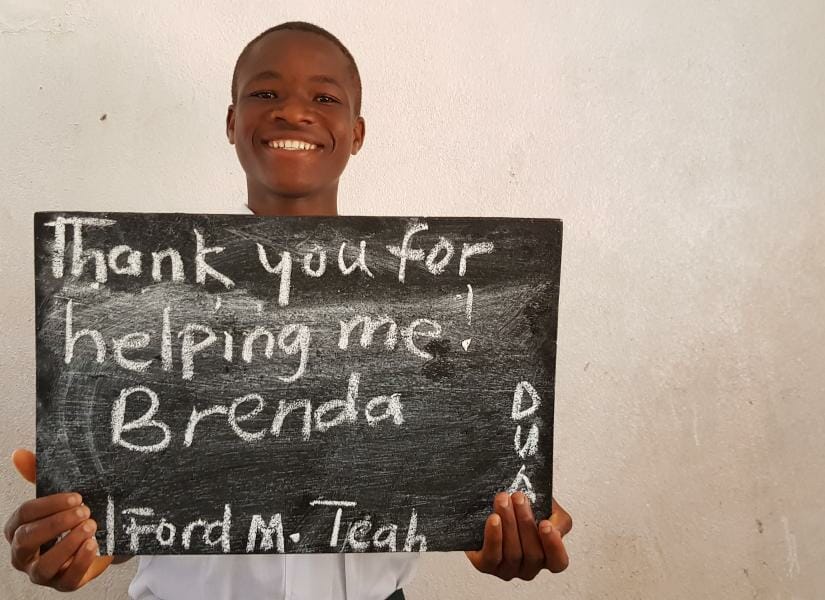 Thank you for
helping me!
Brenda
Ford M. Teah